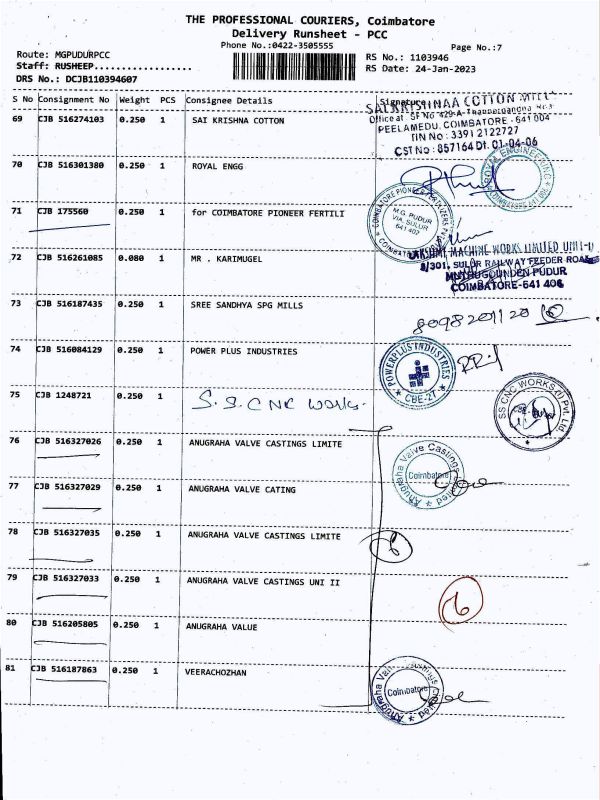 THE PROFESSIONAL COURIERS, Coimbatore
Delivery Runsheet - PCC
Phone No.:0422-3505555
Page No.:7
Route: MGPUDURPCC
Staff: RUSHEEP..................
DRS No.: DCJB110394607
RS No.: 1103946
RS Date: 24-Jan-2023
S No Consignment No Weight PCS Consignee Details Signature
SAI KRISHNAA COTTON MILLS
Office at SF No 429-A
PEELAMEDU, COIMBATORE - 641 004
TIN No : 3391 2122727
CST No : 857164 Dt. 01-04-06
69 CJB 516274103 0.250 1 SAI KRISHNA COTTON
70 CJB 516301380 0.250 1 ROYAL ENGG
ROYAL ENGINEERING
71 CJB 175560 0.250 1 for COIMBATORE PIONEER FERTILI
COIMBATORE PIONEER FERTILIZERS
M.G. PUDUR
VIA. SULUR
641 402
72 CJB 516261085 0.080 1 MR . KARIMUGEL
LAKSHMI MACHINE WORKS LIMITED UNIT-II
SULUR RAILWAY FEEDER ROAD
MUTHUGOUNDEN PUDUR
COIMBATORE-641 406
73 CJB 516187435 0.250 1 SREE SANDHYA SPG MILLS
8098201120
74 CJB 516084129 0.250 1 POWER PLUS INDUSTRIES
POWERPLUS INDUSTRIES
CBE-27
75 CJB 1248721 0.250 1 S.S. CNC Works.
SS CNC WORKS (I) Pvt. Ltd
76 CJB 516327026 0.250 1 ANUGRAHA VALVE CASTINGS LIMITE
Anugraha Valve Castings Limited
Coimbatore
77 CJB 516327029 0.250 1 ANUGRAHA VALVE CATING
78 CJB 516327035 0.250 1 ANUGRAHA VALVE CASTINGS LIMITE
6
79 CJB 516327033 0.250 1 ANUGRAHA VALVE CASTINGS UNI II
6
80 CJB 516205805 0.250 1 ANUGRAHA VALUE
81 CJB 516187863 0.250 1 VEERACHOZHAN
Anugraha Valve Castings Limited
Coimbatore